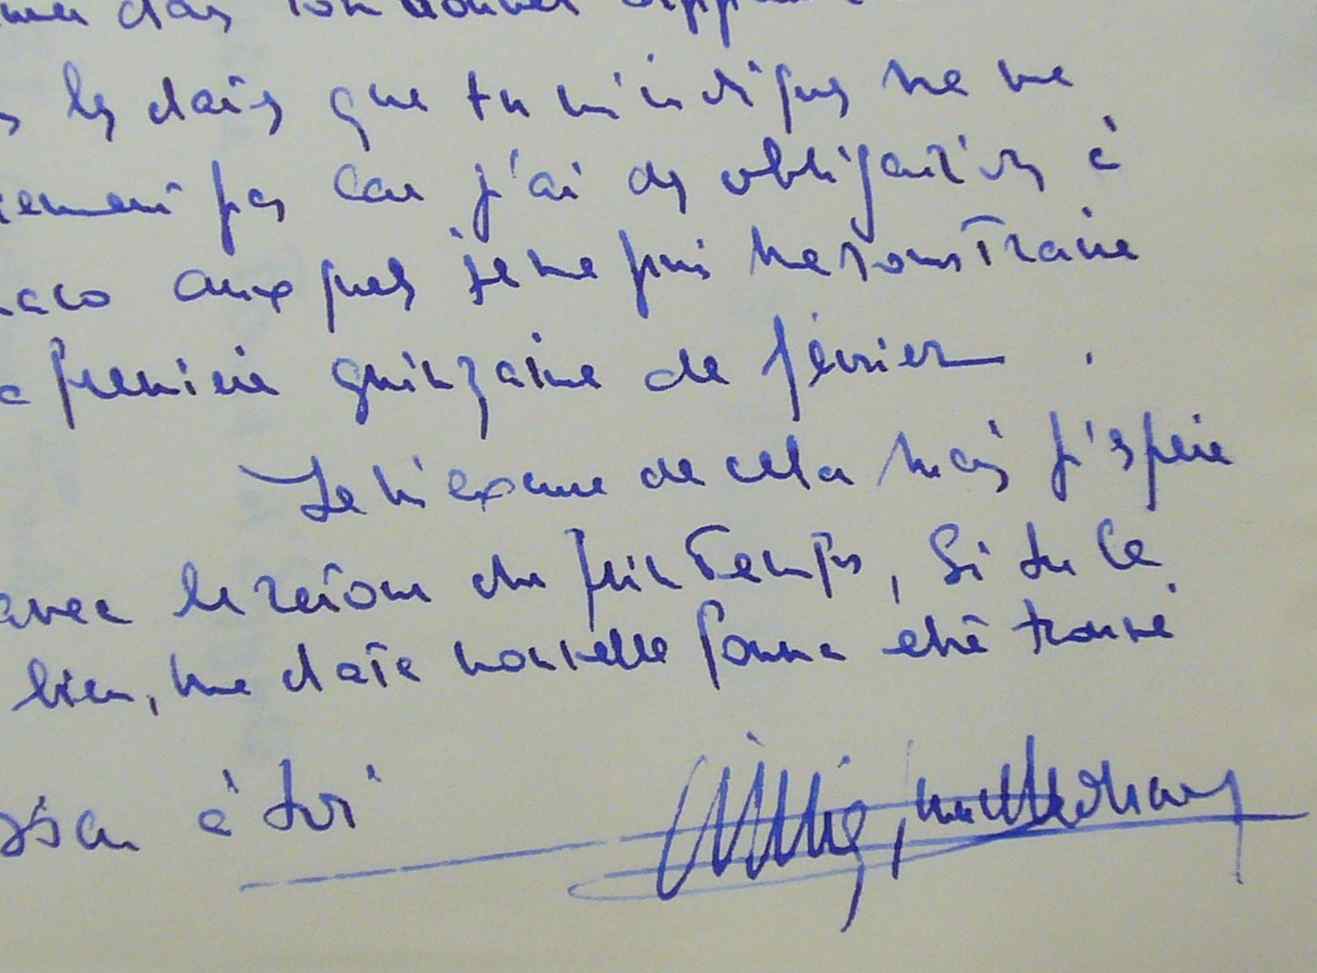 dans ton
les dates que tu m'indiques ne me
pas car j'ai des obligations à
aco auxquels je ne puis me soustraire
première quinzaine de février.
Je m'excuse de cela mais j'espère
avec le retour du printemps, si tu le
bien, une date nouvelle pourra être trouvé
à toi